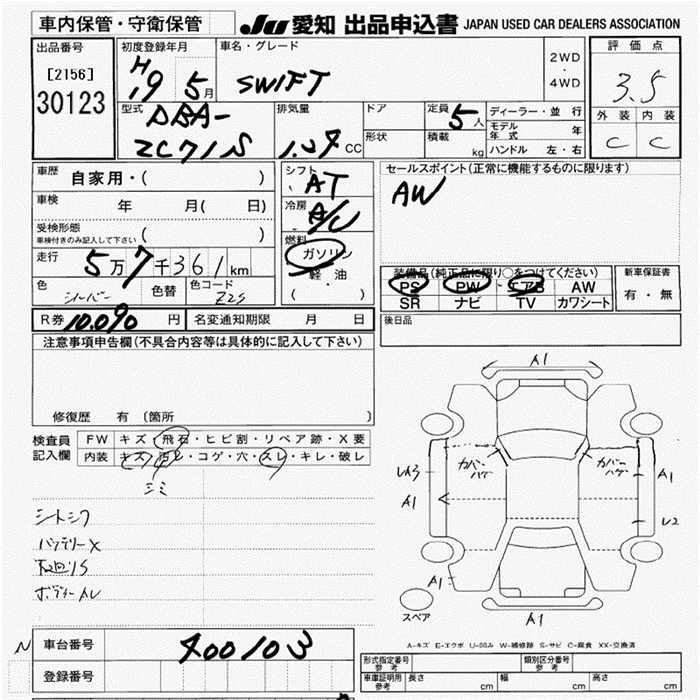 車内保管・守衛保管
JU 愛知 出品申込書 JAPAN USED CAR DEALERS ASSOCIATION
出品番号
[2156]
30123
初度登録年月
H19 5月
車名・グレード
SWIFT
2WD
・
4WD
評価点
3.5
外装 内装
C C
型式
DBA-
ZC71S
排気量
CC
ドア
形状
定員 5人
積載 kg
ディーラー・並行
モデル年式 年
ハンドル 左・右
車歴 自家用・( )
車検 年 月( 日)
受検形態
車検付きのみ記入して下さい ( )
走行 5万7千361km
色 シルバー 色替 色コード Z2S
シフト AT
冷房 A/C
燃料
ガソリン
・
軽油
( )
セールスポイント(正常に機能するものに限ります)
AW
装備品(純正品に限り○をつけてください)
PS PW エアB AW
SR ナビ TV カワシート
新車保証書
有・無
R券 10.090 円 名変通知期限 月 日
後日品
注意事項申告欄(不具合内容等は具体的に記入して下さい)
修復歴 有 〔箇所
検査員記入欄
FW キズ・飛石・ヒビ割・リペア跡・X要
内装 キズ・汚レ・コゲ・穴・スレ・キレ・破レ
シミ
シートシワ
バッテリーX
A1
カバーハゲ カバーハゲ
A1
A1
U2
A1
A1
スペア
A-キズ E-エクボ U-凹み W-補修跡 S-サビ C-腐食 XX-交換済
車台番号 400103
登録番号
N
形式指定番号 参考
類別区分番号 参考
車庫証明用 参考 長さ cm 幅 cm 高さ cm